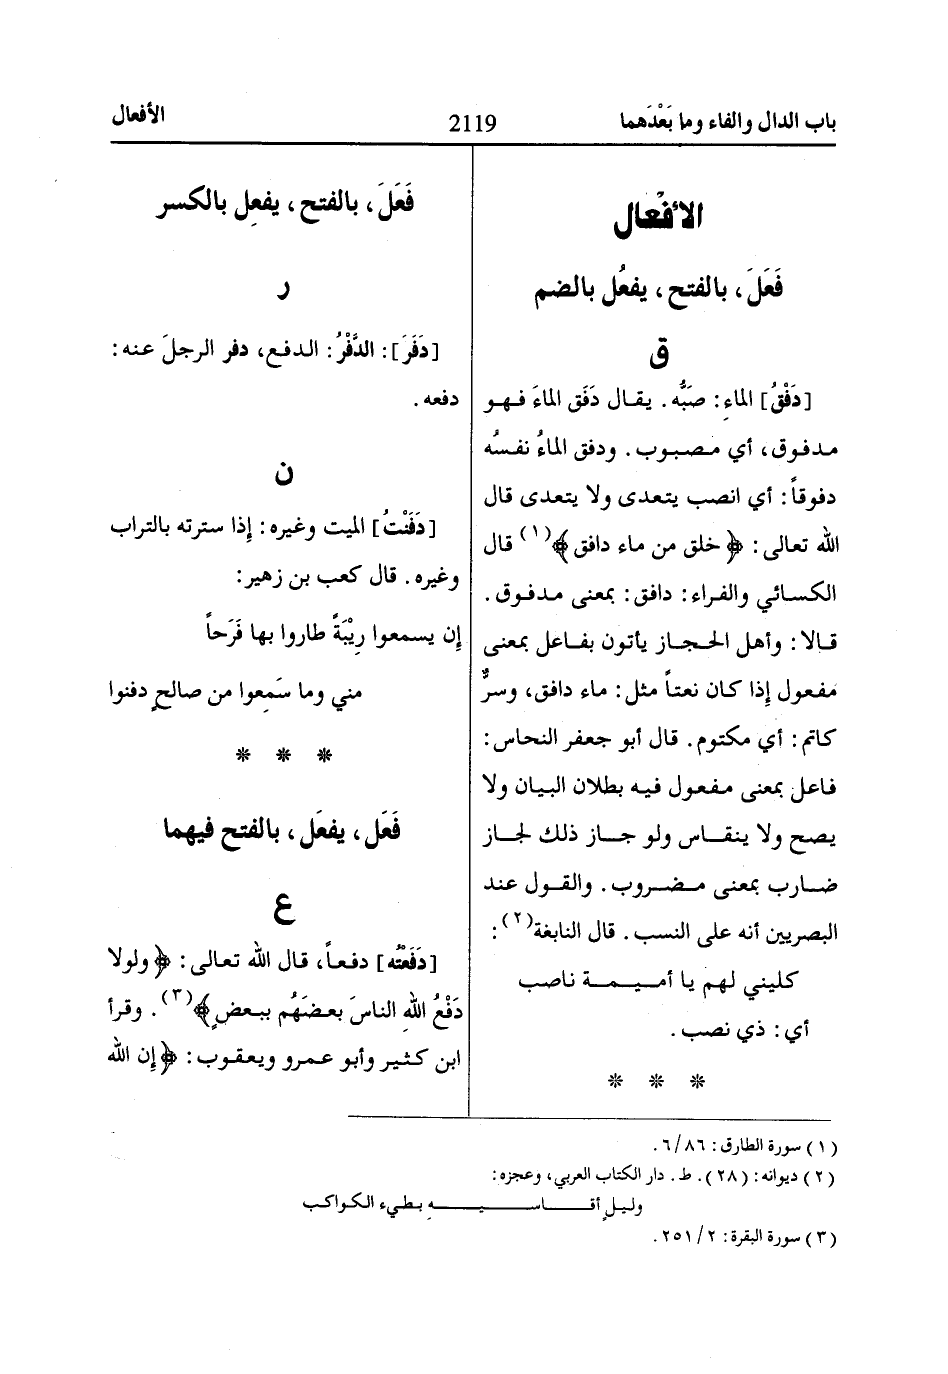 باب الدال والفاء وما بَعْدَهما
2119
الأفعال
الأفْعال
فَعَلَ، بالفتح، يفعُل بالضم
ق
[دَفْقُ] الماءِ: صَبُّه. يقال دَفَق الماءَ فهو
مدفوق، أي مصبوب. ودفق الماءُ نفسُه
دفوقاً: أي انصب يتعدى ولا يتعدى قال
الله تعالى: ﴿خلق من ماء دافق﴾(١) قال
الكسائي والفراء: دافق: بمعنى مدفوق.
قالا: وأهل الحجاز يأتون بفاعل بمعنى
مفعول إذا كان نعتاً مثل: ماء دافق، وسرٌّ
كاتم: أي مكتوم. قال أبو جعفر النحاس:
فاعل بمعنى مفعول فيه بطلان البيان ولا
يصح ولا ينقاس ولو جاز ذلك لجاز
ضارب بمعنى مضروب. والقول عند
البصريين أنه على النسب. قال النابغة(٢):
كليني لهم يا أميمة ناصب
أي: ذي نصب.
* * *
فَعَلَ، بالفتح، يفعِل بالكسر
ر
[دَفَرَ]: الدَّفْرُ: الدفع، دفر الرجلَ عنه:
دفعه.
ن
[دَفَنْتُ] الميت وغيره: إذا سترته بالتراب
وغيره. قال كعب بن زهير:
إن يسمعوا رِيْبَةً طاروا بها فَرَحاً
مني وما سَمِعوا من صالحٍ دفنوا
* * *
فَعَل، يفعَل، بالفتح فيهما
ع
[دَفَعْتُه] دفعاً، قال الله تعالى: ﴿ولولا
دَفْعُ اللهِ الناسَ بعضَهُم ببعضٍ﴾(٣). وقرأ
ابن كثير وأبو عمرو ويعقوب: ﴿إن الله
(١) سورة الطارق: ٨٦/٦.
(٢) ديوانه: (٢٨). ط. دار الكتاب العربي، وعجزه:
وليلٍ أقاسيهِ بطيء الكواكب
(٣) سورة البقرة: ٢/٢٥١.